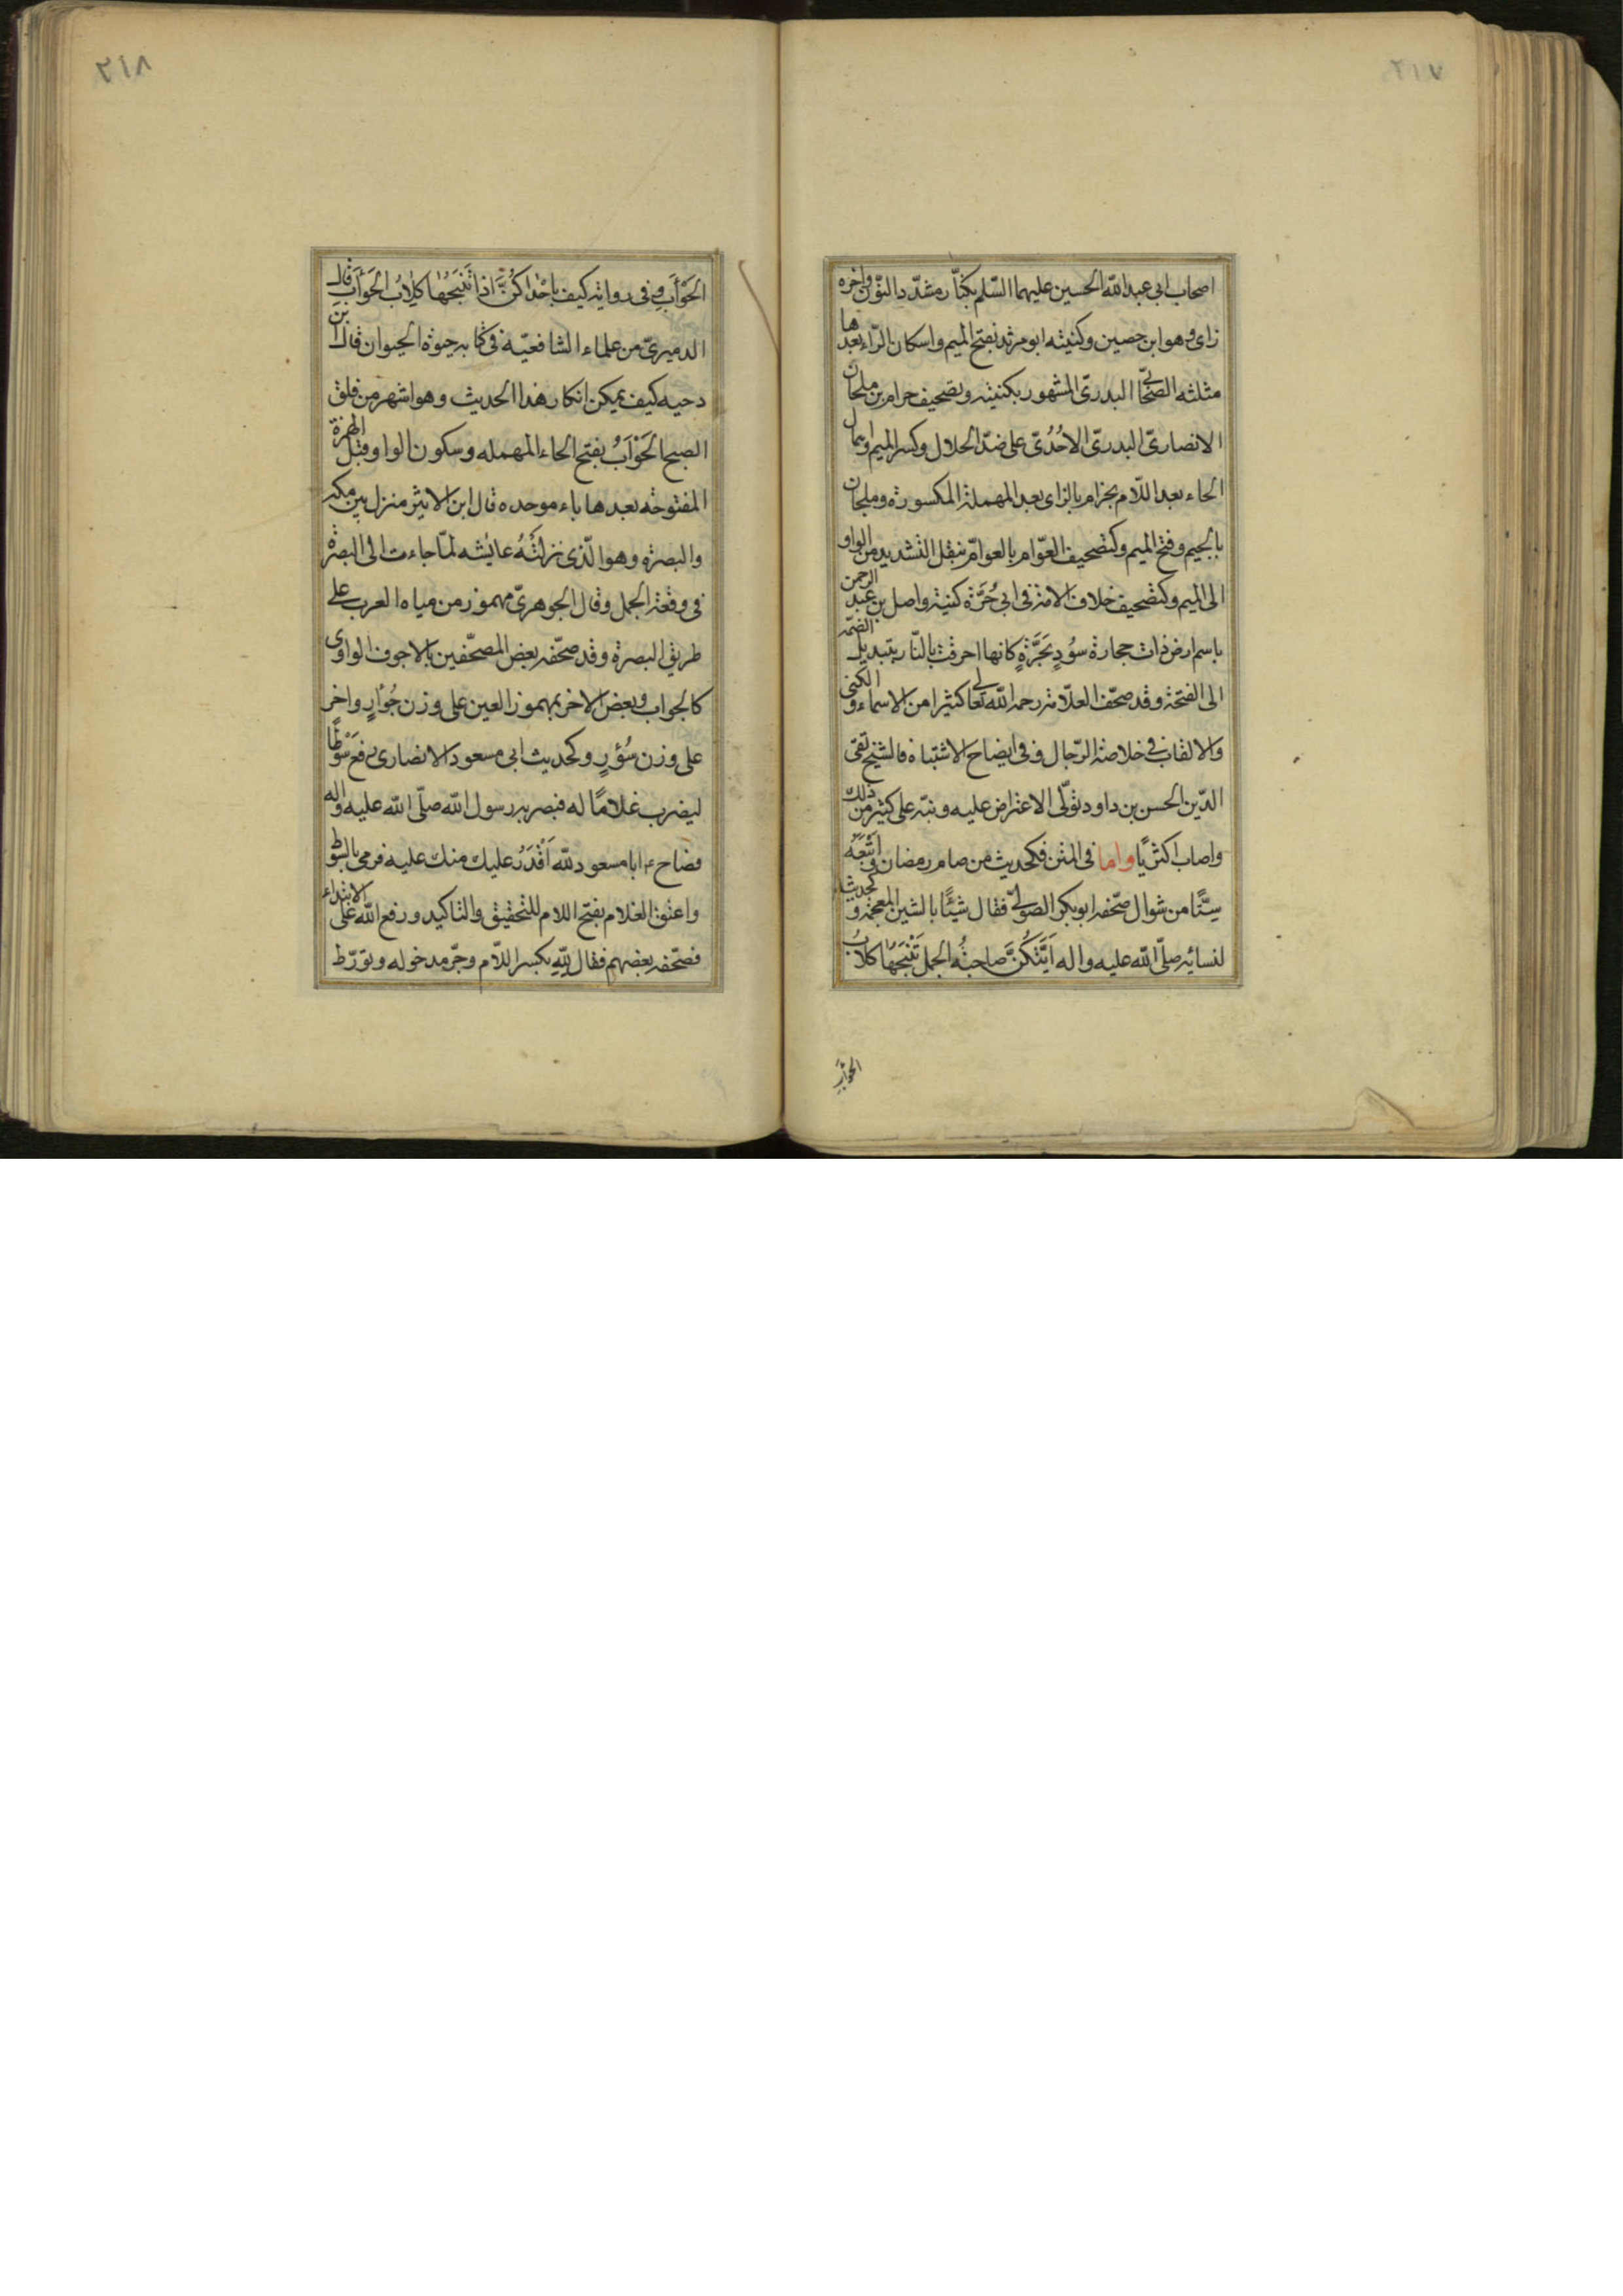 ٢١٧
اصحاب ابى عبد الله الحسين عليهما السّلم بكنّاز مشدّد النّون واخره
زاى وهو ابن حصين وكنيته ابو مرثد بفتح الميم واسكان الرّاء بعدها
مثلثه الصّحابىّ البدرىّ المشهور بكنيته وتصحيف حرام بن ملحان
الانصارىّ البدرىّ الاحُدُىّ على ضدّ الحلال وكسر الميم واهمال
الحاء بعد اللّام بحزام بالزاى بعد المهملة المكسورة وملجان
بالجيم وفتح الميم وكتصحيف العوّام بالعوامّ بنقل التشديد من الواو
الى الميم وكتصحيف خلاف الامة فى ابى حُرَّة كنية واصل بن عبد الرحمن
باسم ارض ذات حجارة سُودٍ نَخِرَةٍ كانها احرقت بالنّار بتبديل الضمّه
الى الفتحة وقد صحّف العلّامة رحمه الله تعالى كثيرا من الاسماء والكنى
والالقاب فى خلاصة الرّجال وفى ايضاح الاشتباه فالشيخ تقى
الدّين الحسن بن داود تولّى الاعتراض عليه ونبّه على كثير من ذلك
واصاب اكثريًا واما فى المتن فكحديث من صام رمضان واتبَعَه
سِتًّا من شوال صحّفه ابو بكر الصّولىّ فقال شيئًا بالشين المعجمة وكحديث
لنسائه صلّى الله عليه واله اَيَّتكُنَّ صاحبةُ الجمل تَنْبَحُهَا كلابُ
الحوأب
٢١٨
الحَوْأَب وفى رواية كيف باحْدٰاكُنَّ اذا تَنْبَحُهٰا كلٰابُ الحَوْأَب قال
الدميرىّ من علماء الشافعيّه فى كتابه حيوة الحيوان قال ابن
دحيه كيف يمكن انكار هذا الحديث وهو اشهر من فلق
الصبح الحَوْأَبُ بفتح الحاء المهمله وسكون الواو وقبل الهمزة
المفتوحة بعدها باء موحده قال ابن الاثير منزل بين مكه
والبصرة وهو الّذى نزلَتْهُ عايشه لمّا جاءت الى البصرة
فى وقعة الجمل وقال الجوهرىّ مهموز من مياه العرب على
طريق البصرة وقد صحّفه بعض المصحّفين بالاجوف الواوى
كالجواب وبعض الاخر بمهموز العين على وزن جُؤارٍ واخر
على وزن سُؤرٍ وكحديث ابى مسعود الانصارى رفع سَوْطًا
ليضرب غلامًا له فبصر به رسول الله صلّى الله عليه واله
فصاح ابا مسعود للّٰه اَقْدَرُ عليك منك عليه فرمى بالسّوط
واعتق الغلام بفتح اللام للتحقيق والتاكيد ورفع الله على الابتداء
فصحّفه بعضهم فقال لِلّهِ بكسر اللّام وجرّ مدخوله وتورّط